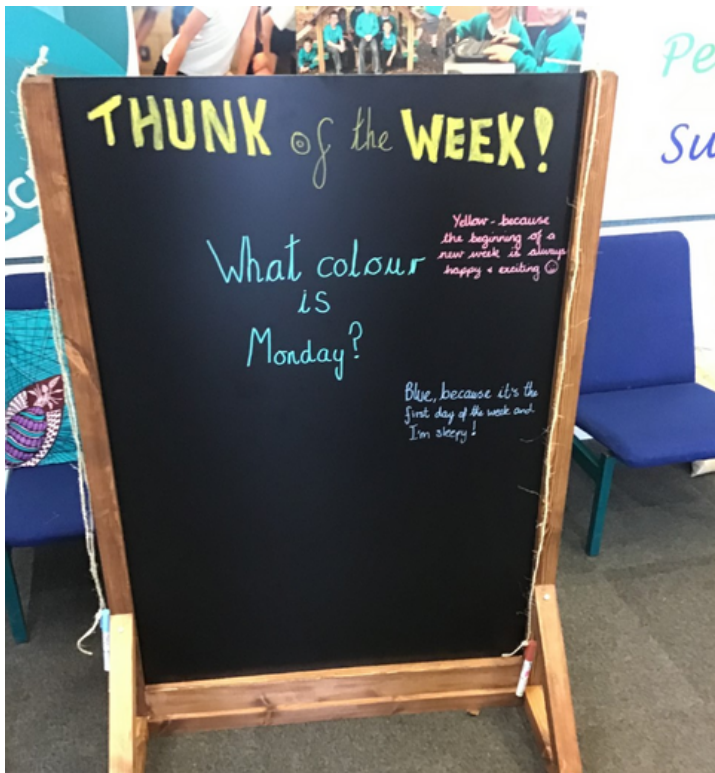 THUNK of the WEEK!
What colour
is
Monday?
Yellow - because
the beginning of a
new week is always
happy + exciting ☺
Blue, because it's the
first day of the week and
I'm sleepy!
Pe
Su
SC